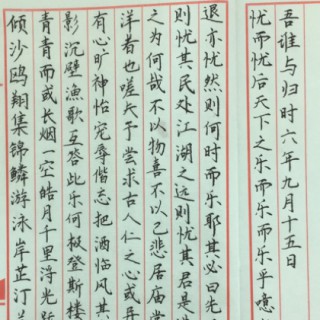 吾谁与归时六年九月十五日
忧而忧后天下之乐而乐而乐乎噫
退亦忧然则何时而乐耶其必曰先
则忧其民处江湖之远则忧其君是
之为何哉不以物喜不以己悲居庙堂
洋者也嗟夫予尝求古人仁之心或异
有心旷神怡宠辱偕忘把酒临风其
影沉璧漁歌互答此乐何极登斯楼
青青而或长烟一空皓月千里浮光跃
倾沙鸥翔集锦鳞游泳岸芷汀兰